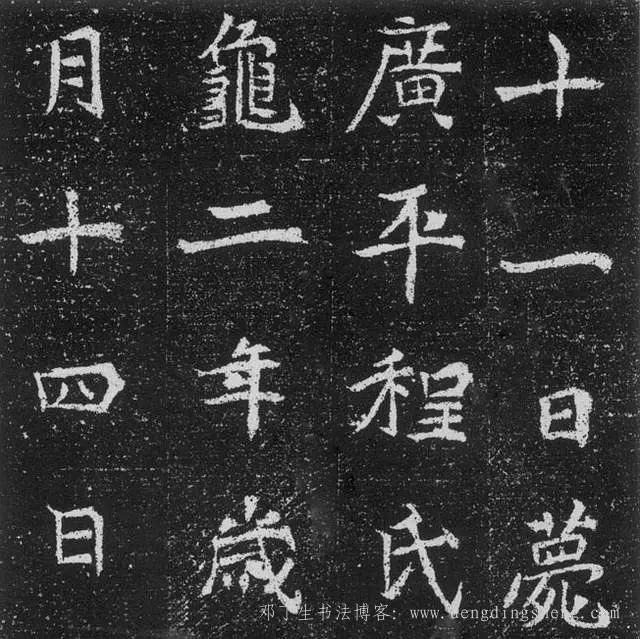 十一日薨
廣平程氏
龜二年歲
月十四日
邓丁生书法博客: www.dengdingsheng.com